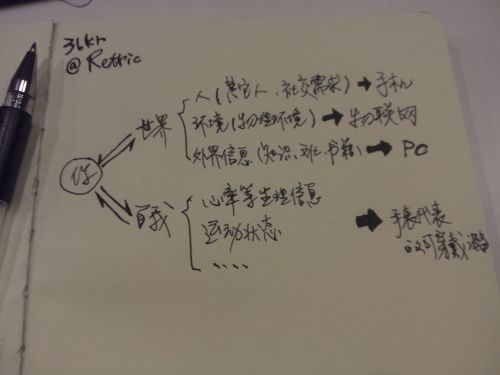 36kr
@Retric
你
世界
人(其它人、社交需求)➡手机
环境(物理环境)➡物联网
外界信息(知识、文化、书籍)➡PC
自我
心率等生理信息
运动状态
、、、、
➡手表代表
的可穿戴设备